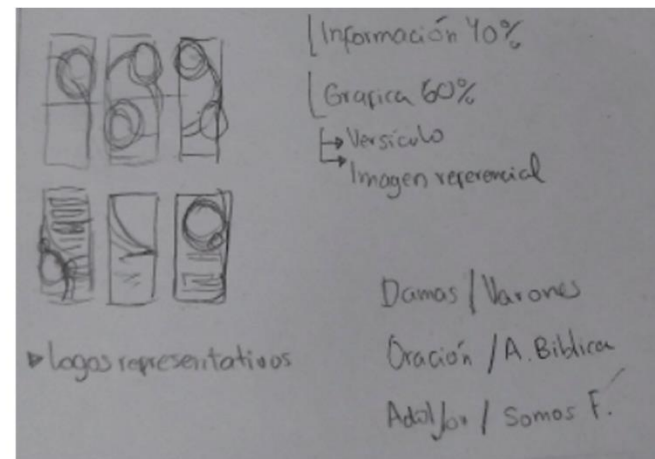 Información 40%
Grafica 60%
Versículo
Imagen referencial
Logos representativos
Damas / Varones
Oración / A. Biblica
Adol/Jov / Somos F.